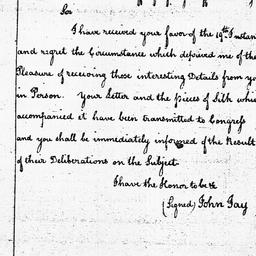 Sir
I have received your favor of the 19th Instan
and regret the Circumstance which deprived me of the
Pleasure of receiving those interesting Details from yo
in Person. Your Letter and the Pieces of Silk whic
accompanied it have been transmitted to Congress
and you shall be immediately informed of the Result
of their Deliberations on the Subject.
I have the Honor to be &
(Signed) John Jay